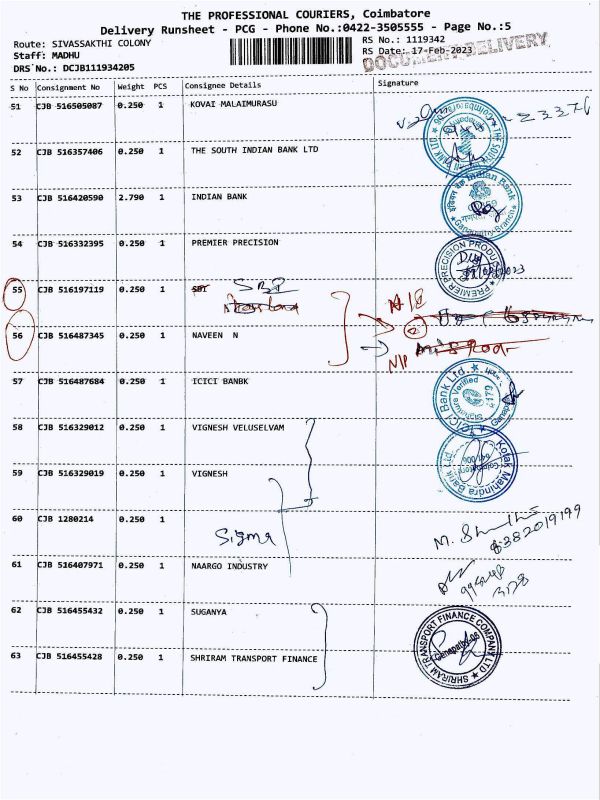 THE PROFESSIONAL COURIERS, Coimbatore
Delivery Runsheet - PCG - Phone No.:0422-3505555 - Page No.:5
Route: SIVASSAKTHI COLONY RS No.: 1119342
Staff: MADHU RS Date: 17-Feb-2023
DRS No.: DCJB111934205 DOCUMENT DELIVERY
S No Consignment No Weight PCS Consignee Details Signature
51 CJB 516505087 0.250 1 KOVAI MALAIMURASU
52 CJB 516357406 0.250 1 THE SOUTH INDIAN BANK LTD
53 CJB 516420590 2.790 1 INDIAN BANK
Indian Bank
Ganapathy-Branch
54 CJB 516332395 0.250 1 PREMIER PRECISION
PREMIER PRECISION PRODUCTS
55 CJB 516197119 0.250 1 SBI SBI
56 CJB 516487345 0.250 1 NAVEEN N
57 CJB 516487684 0.250 1 ICICI BANBK
ICICI Bank Ltd.
Signature Verified
58 CJB 516329012 0.250 1 VIGNESH VELUSELVAM
Kotak Mahindra Bank Ltd.
59 CJB 516329019 0.250 1 VIGNESH
60 CJB 1280214 0.250 1 Sigma
8382019199
61 CJB 516407971 0.250 1 NAARGO INDUSTRY
62 CJB 516455432 0.250 1 SUGANYA
63 CJB 516455428 0.250 1 SHRIRAM TRANSPORT FINANCE
SHRIRAM TRANSPORT FINANCE COMPANY LTD